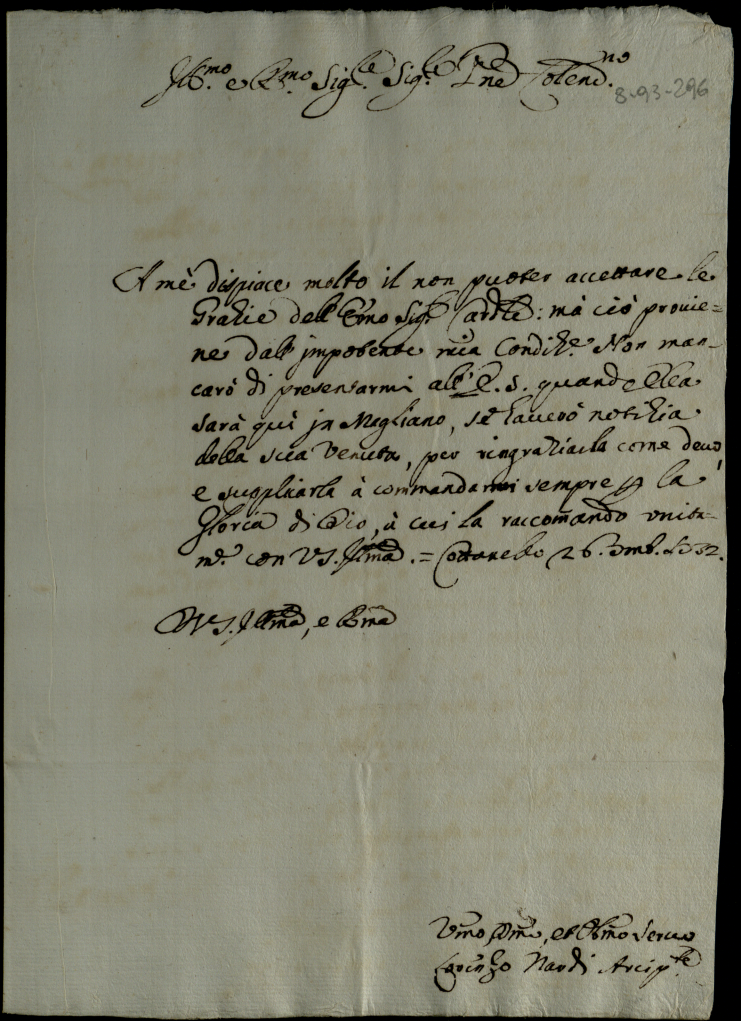 Ill.mo e R.mo Sig.re Sig.re Pne Colend.mo
8-93-296
A mè dispiace molto il non puoter accettare le
Grazie dell'Emo Sig.r Cardle: mà ciò provie=
ne dall'impotente mia Condiz.e Non man=
carò di presentarmi all'E. S. quando Ella
sarà quì in Magliano, se haverò notizia
della sua venuta, per ringraziarla come devo,
e supplicarla à commandarmi sempre p la
Gloria di Dio, à cui la raccomando unita=
m.e con VS. Illma. = Cottanello 26. 3mb.
D VS. Illma, e Rma
Vmo Dmo, et Obmo Servo
Lorenzo Nardi Arcip.te